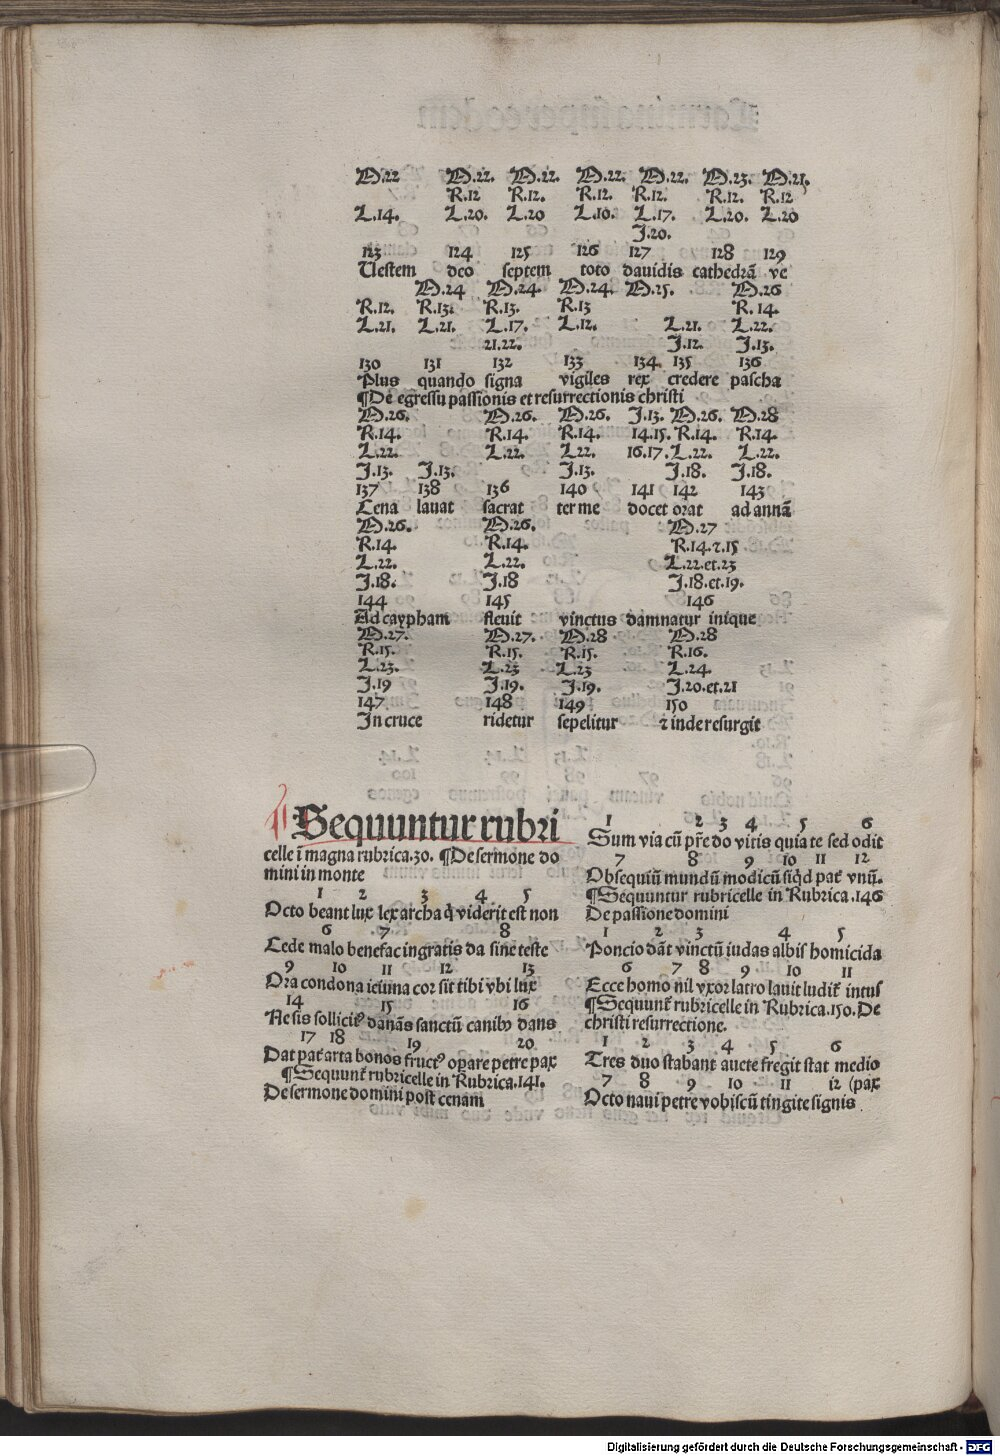 M.22 M.22. M.22. M.22. M.22. M.23. M.21.
R.12 R.12. R.12. R.12. R.12. R.12
L.14. L.20. L.20 L.10. L.17. L.20. L.20
J.20.
123 124 125 126 127 128 129
Uestem deo septem toto dauidis cathedrã ve
M.24 M.24. M.24. M.25. M.26
R.12. R.13. R.13. R.13 R.14.
L.21. L.21. L.17. L.12. L.21. L.22.
21.22. J.12. J.13.
130 131 132 133 134. 135 136
Plus quando signa vigiles rex credere pascha
¶De egressu passionis et resurrectionis christi
M.26. M.26. M.26. J.13. M.26. M.28
R.14. R.14. R.14. 14.15. R.14. R.14.
L.22. L.22. L.22. 16.17. L.22. L.22.
J.13. J.13. J.13. J.18. J.18.
137 138 136 140 141 142 143
Cena lauat sacrat ter me docet orat ad annã
M.26. M.26. M.27
R.14. R.14. R.14.⁊.15
L.22. L.22. L.22.et.23
J.18. J.18 J.18.et.19.
144 145 146
Ad caypham fleuit vinctus damnatur inique
M.27. M.27. M.28 M.28
R.15. R.15. R.15. R.16.
L.23. L.23 L.23 L.24.
J.19 J.19. J.19. J.20.et.21
147 148 149 150
In cruce ridetur sepelitur ⁊ inde resurgit
¶ Sequuntur rubri
celle ĩ magna rubrica.30. ¶De sermone do
mini in monte
1 2 3 4 5
Octo beant lux lex archa q̃ viderit est non
6 7 8
Cede malo benefac ingratis da sine teste
9 10 11 12 13
Ora condona ieiuna cor sit tibi vbi lux
14 15 16
Ne sis sollicitꝰ dānās sanctũ canibꝫ dans
17 18 19 20
Dat pat̃ arta bonos fructꝰ opare petre pax
¶Sequunt̃ rubricelle in Rubrica.141.
De sermone domini post cenam
1 2 3 4 5 6
Sum via cũ pr̃e do vitis quia te sed odit
7 8 9 10 11 12
Obsequiũ mundũ modicũ siqd pat̃ vnũ.
¶Sequuntur rubricelle in Rubrica.146
De passione domini
1 2 3 4 5
Poncio dãt vinctũ iudas albis homicida
6 7 8 9 10 11
Ecce homo nil vxor latro lauit ludit̃ intus
¶Sequunt̃ rubricelle in Rubrica.150. De
christi resurrectione.
1 2 3 4 5 6
Tres duo stabant aucte fregit stat medio
7 8 9 10 11 12 (pax
Octo naui petre vobiscũ tingite signis
Digitalisierung gefördert durch die Deutsche Forschungsgemeinschaft - DFG